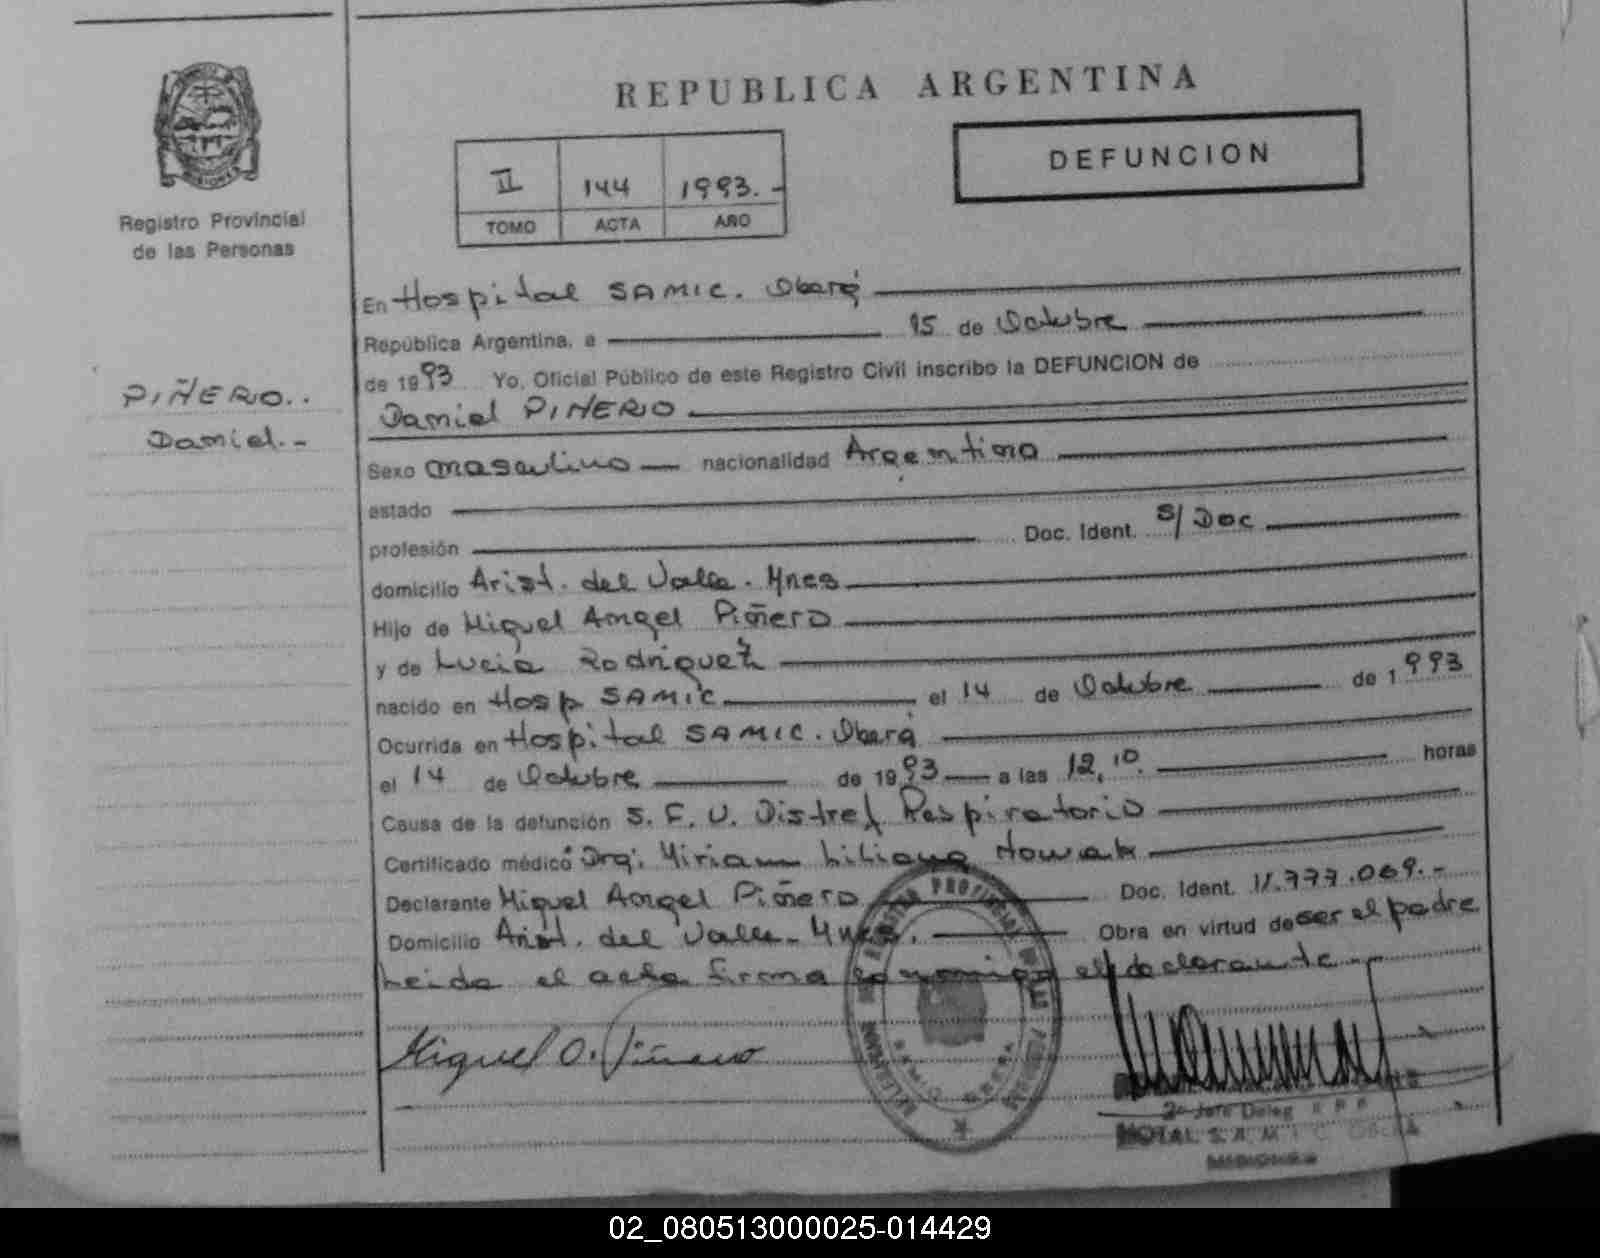 REPUBLICA ARGENTINA
DEFUNCION
II 144 1993.-
TOMO ACTA AÑO
Registro Provincial
de las Personas
PIÑERO..
Daniel.-
En Hospital SAMIC. Oberá
República Argentina, a 15 de Octubre
de 1993 Yo, Oficial Público de este Registro Civil inscribo la DEFUNCION de
Daniel PIÑERO
Sexo masculino nacionalidad Argentino
estado
profesión Doc. Ident. S/Doc
domicilio Arist. del Valle. Mnes
Hijo de Miguel Angel Piñero
y de Lucia Rodriguez
nacido en Hosp SAMIC el 14 de Octubre de 1993
Ocurrida en Hospital SAMIC. Oberá
el 14 de Octubre de 1993 a las 12,10. horas
Causa de la defunción S.F.U. Distref Respiratorio
Certificado médico Dra: Miriam Liliana
Declarante Miguel Angel Piñero Doc. Ident. 11.777.069.-
Domicilio Arist. del Valle. Mnes. Obra en virtud de ser el padre
Leida el acta firma conmigo el declarante.-
Miguel A. Piñero
2º Jefe Deleg R P P
HOTAL S.A.M.I.C. OBERA
MISIONES
02_080513000025-014429